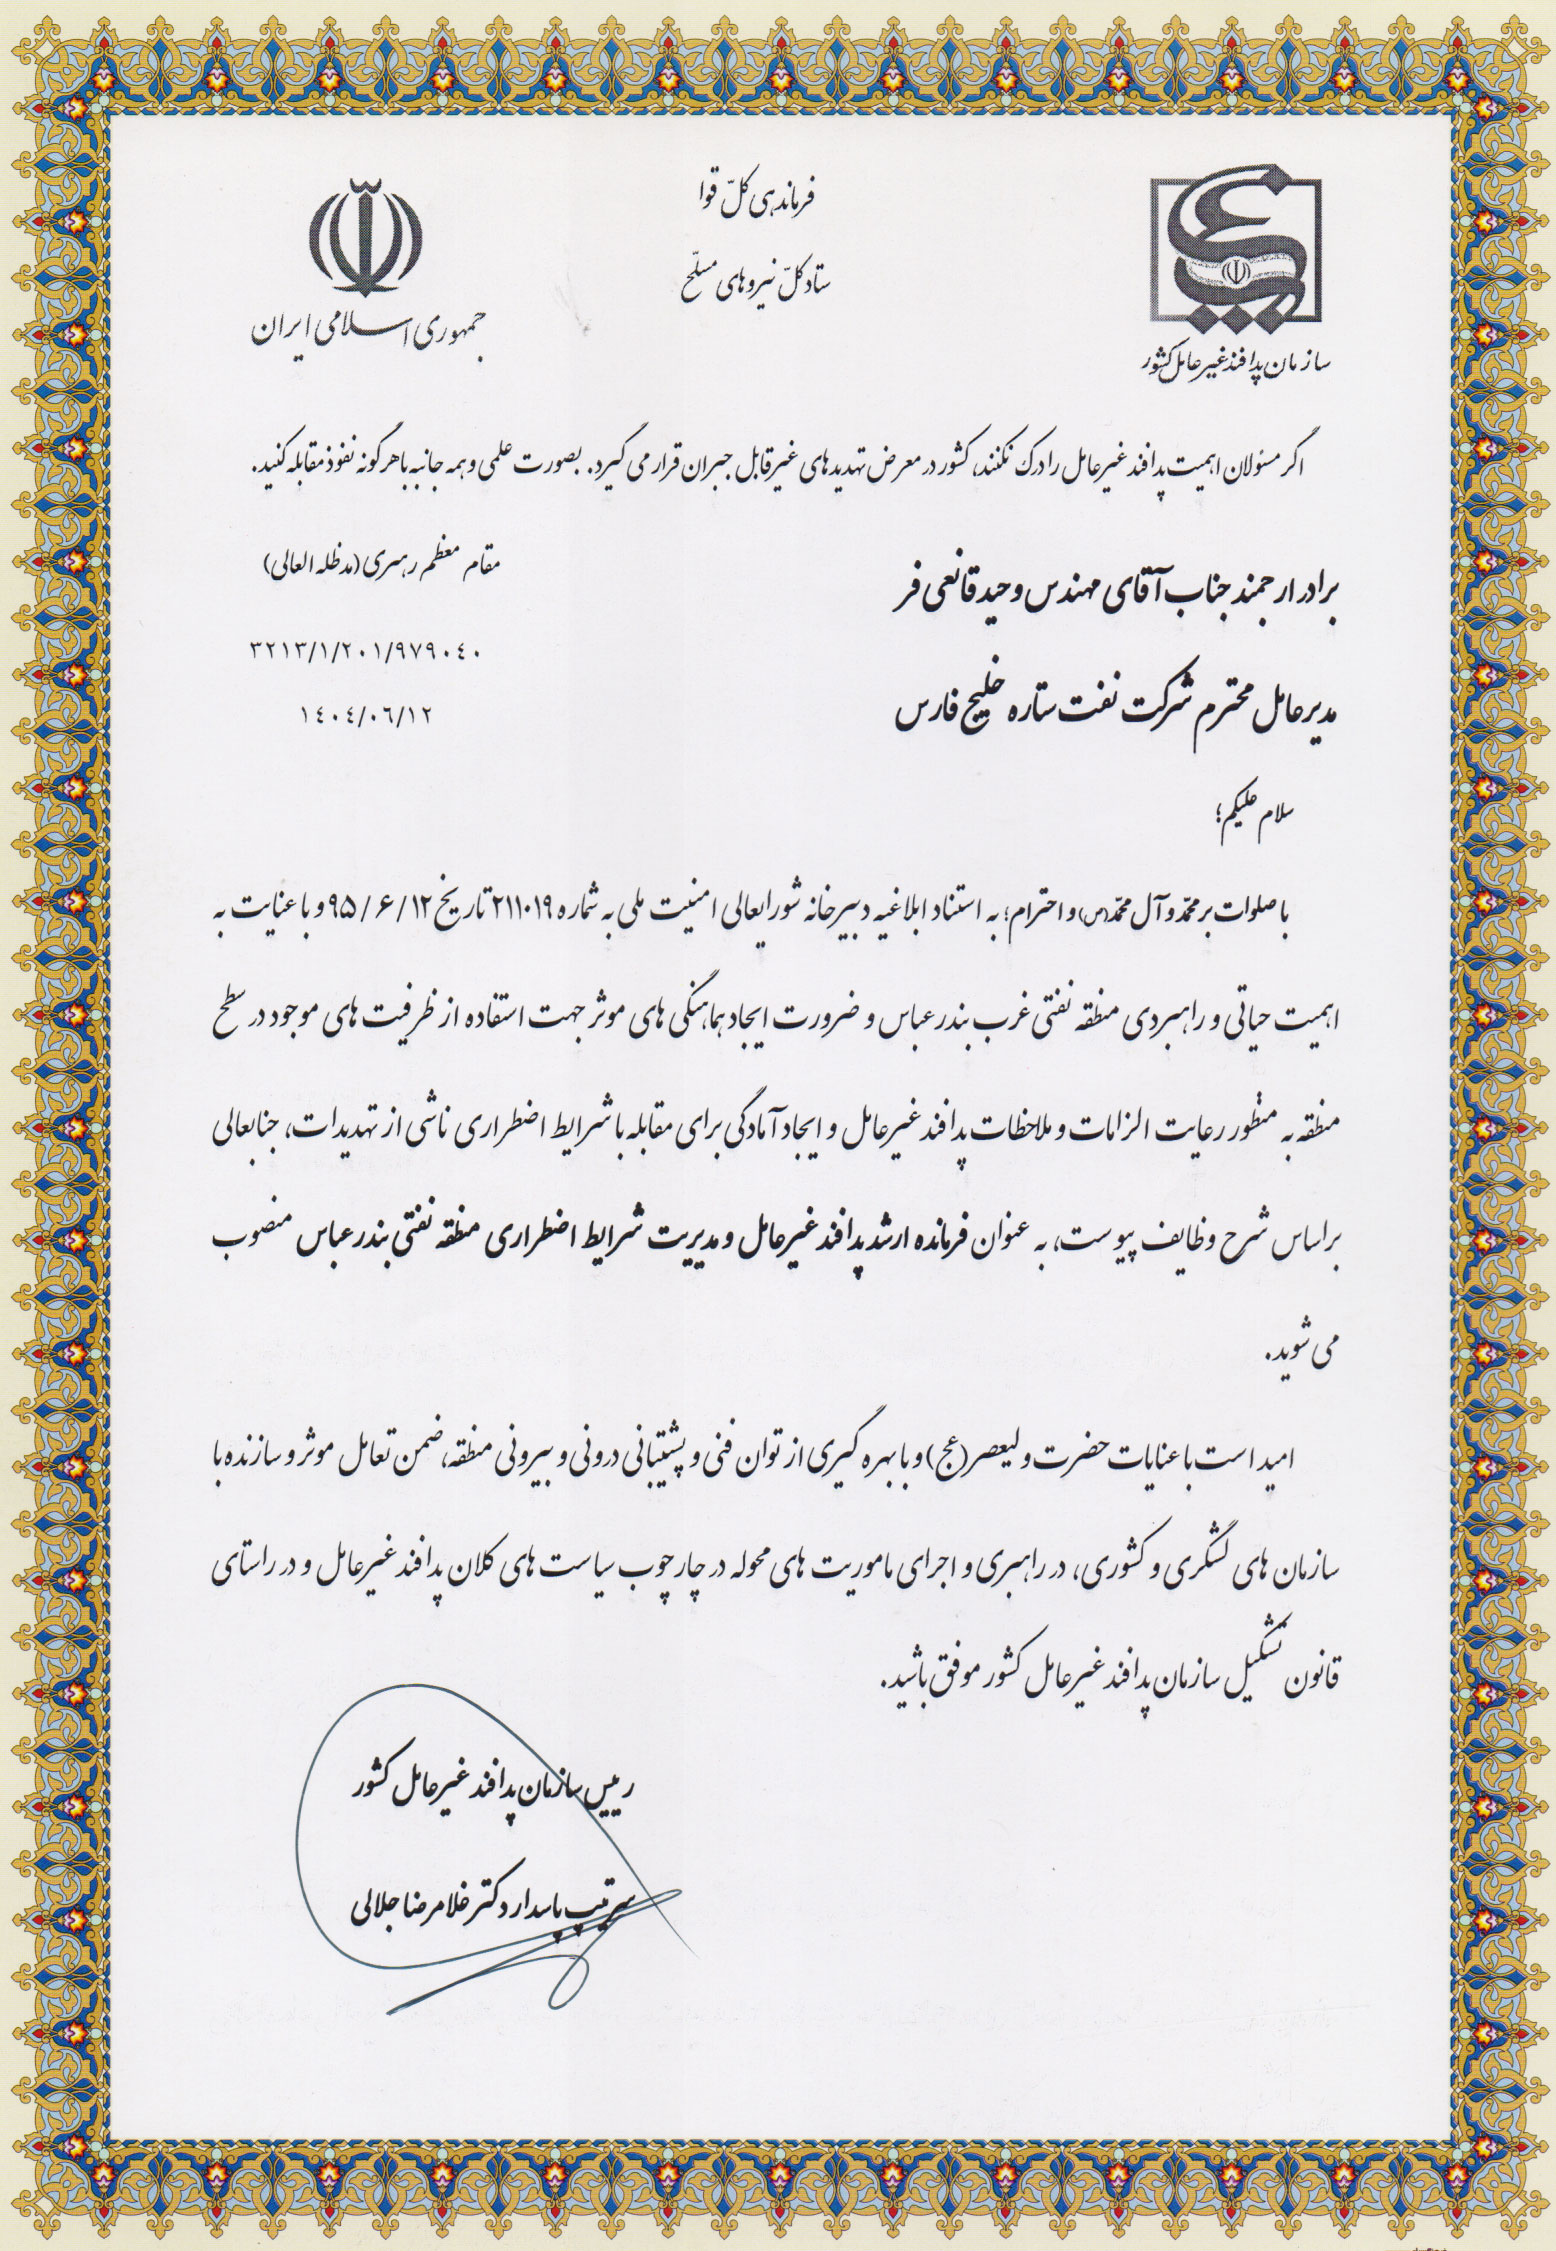 فرماندهی کلّ قوا
ستاد کلّ نیروهای مسلّح
جمهوری اسلامی ایران
سازمان پدافند غیرعامل کشور
اگر مسئولان اهمیت پدافند غیرعامل را درک نکنند، کشور در معرض تهدیدهای غیرقابل جبران قرار می گیرد. بصورت علمی و همه جانبه با هرگونه نفوذ مقابله کنید.
مقام معظم رهبری (مدظله العالی)
برادر ارجمند جناب آقای مهندس وحید قانعی فر
٣٢١٣/١/٢٠١/٩٧٩٠٤٠
مدیرعامل محترم شرکت نفت ستاره خلیج فارس
١٤٠٤/٠٦/١٢
سلام علیکم؛
با صلوات بر محمّد و آل محمّد(ص) و احترام؛ به استناد ابلاغیه دبیرخانه شورایعالی امنیت ملی به شماره ۲۱۱۰۱۹ تاریخ ۹۵/۶/۱۲ و با عنایت به
اهمیت حیاتی و راهبردی منطقه نفتی غرب بندرعباس و ضرورت ایجاد هماهنگی های موثر جهت استفاده از ظرفیت های موجود در سطح
منطقه به منظور رعایت الزامات و ملاحظات پدافند غیرعامل و ایجاد آمادگی برای مقابله با شرایط اضطراری ناشی از تهدیدات، جنابعالی
براساس شرح وظایف پیوست، به عنوان فرمانده ارشد پدافند غیرعامل و مدیریت شرایط اضطراری منطقه نفتی بندرعباس منصوب
می شوید.
امید است با عنایات حضرت ولیعصر(عج) و با بهره گیری از توان فنی و پشتیبانی درونی و بیرونی منطقه، ضمن تعامل موثر و سازنده با
سازمان های لشگری و کشوری، در راهبری و اجرای ماموریت های محوله در چارچوب سیاست های کلان پدافند غیرعامل و در راستای
قانون تشکیل سازمان پدافند غیرعامل کشور موفق باشید.
رییس سازمان پدافند غیرعامل کشور
سرتیپ پاسدار دکتر غلامرضا جلالی